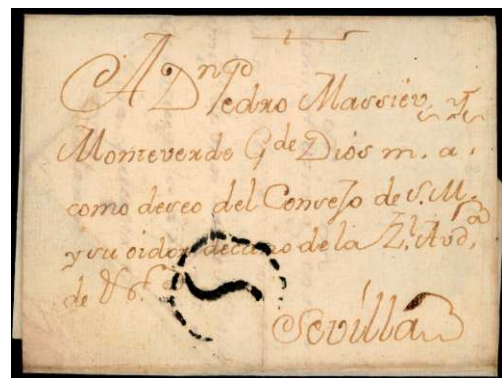 A Dn Pedro Massieu y
Monteverde G de Dios m. a.
como deseo del Consejo de S. M.
y su oidor decano de la Rl. Audª.
de
Sevilla